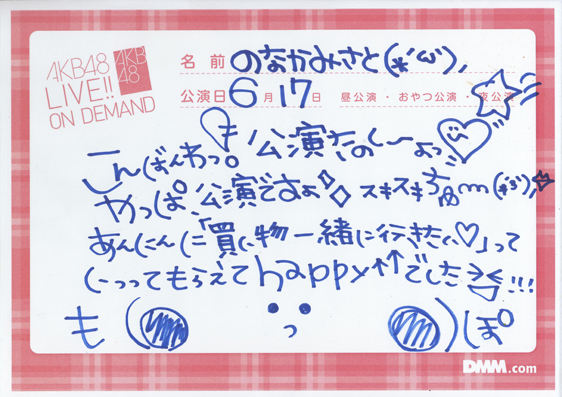 AKB48
LIVE!!
ON DEMAND
AKB
48
名前 のなかみさと(*´ω`),
公演日 6月17日 昼公演・おやつ公演・夜公演
こんばんわっ。公演たのしーよっ
やっぱ、公演ですよ スキスキちゅm(*´3`)
あんにんに「買い物一緒に行きたい♡」って
いーってもらえてhappy↑↑でした!!!
も(●　・・　●)ぽ
DMM.com